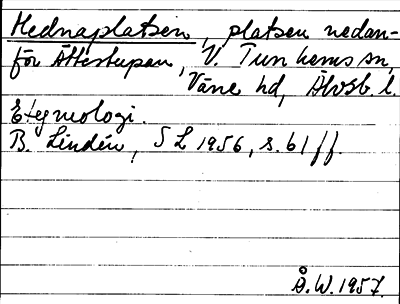 Hednaplatsen, platsen nedan-
för Ättestupan, V. Tunhems sn,
Väne hd, Älvsb. l.
Etymologi.
B. Lindén, SL 1956, s. 61 ff.
Å. W. 1957.